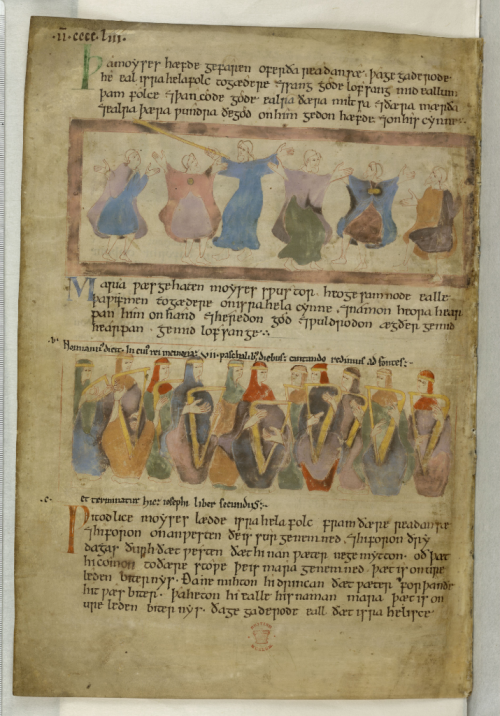 .ii. cccc. liii.
Þa moẏses hæfde gefaren ofer ða readan sæ. þa gegaderode
he eal israhela folc togædere ⁊ sang gode lofsang mid eallum
þam folce ⁊ þancode gode. ealra ðæra mihta ⁊ ðæra mærða
⁊ ealra þæra wundra ðe god on him gedon hæfde. ⁊ on his cẏnne.
Maria wæs gehaten moẏses swustor. heo gesamnode ealle
þa wifmen togædere on israhela cẏnne. ⁊ namon heora hear
pan him on hand ⁊ heredon god ⁊ wuldrodon ægðer ge mid
hearpan. ge mid lofsange
.b. Normannus dicit. In eius rei memoria: vii. paschalibus diebus: cantando redimus ad fontes:-
.c. et terminatur hic: iosephi liber secundus:-
Witodlice moẏses lædde isrrahela folc fram ðære readan sæ
⁊ hi foron on anwesten ðe is sur genemned. ⁊ hi foron ðrẏ
dagas ðurh ðæt westen ðæt hi nan wæter ne gemẏtton. oð þæt
hi comon to ðære stope þe is mara genemned. þæt is on ure
leden biternẏs. Ða ne mihton hi drincan ðæt wæter for þan ðe
hit wæs biter. Þa heton hi ealle his naman mara þæt is on
ure leden biternẏs. Ða gegaderode eall ðæt isrrahelisce